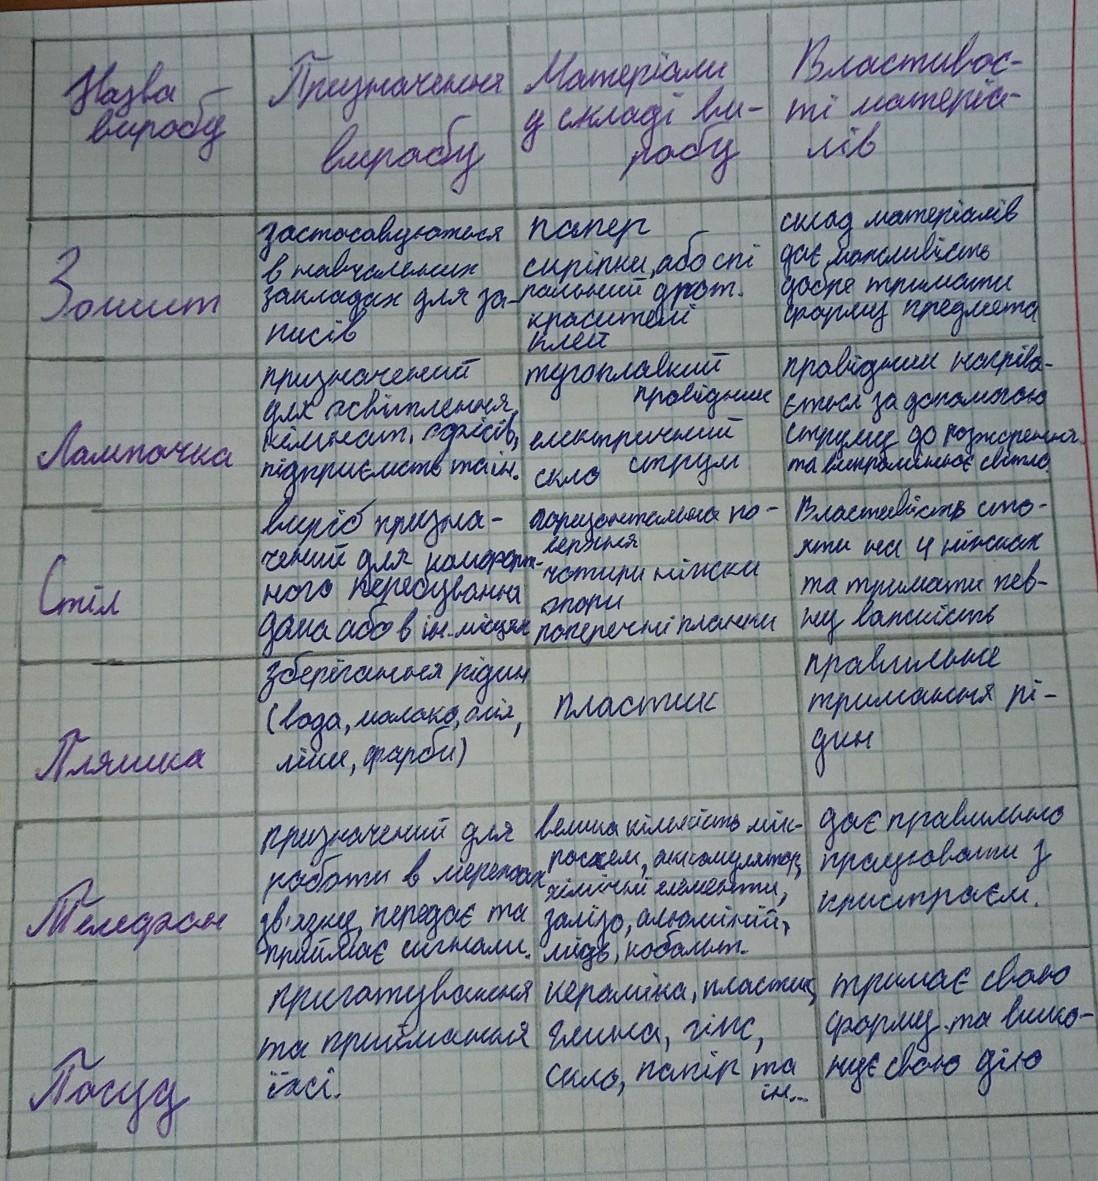 Назва
виробу
Призначення
виробу
Матеріали
у складі ви-
робу
Властивос-
ті матеріа-
лів
Зошит
застосовуюються
в навчальних
закладах для за-
писів
папер
скріпки, або спі
ральний дрот.
красителі
клей
склад матеріалів
дає можливість
добре тримати
форму предмета
Лампочка
призначений
для освітлення
кімнат, офісів,
підприємств та ін.
тугоплавкий
провідник
електричний
скло струм
провідник нагріва-
ється за допомогою
струму до розжарення
та випромінює світло
Стіл
виріб призна-
чений для комфорт-
ного перебування
дома або в ін. місцях
горизонтальна по-
верхня
чотири ніжки
опори
поперечні планки
Властивість сто-
яти на 4 ніжках
та тримати пев-
ну важкість
Пляшка
зберігання рідин
(вода, молоко, олія,
ліки, фарби)
пластик
правильне
тримання рі-
дин
Телефон
призначений для
роботи в мережах
зв'язку, передає та
приймає сигнали.
велика кількість мік-
росхем, аккомулятор,
хімічні елементи,
залізо, алюміній,
мідь, кобальт.
дає правильно
працювати з
пристраєм.
Посуд
приготування
та приймання
їжі.
кераміка, пластик,
глина, гіпс,
скло, папір та
ін...
тримає свою
форму та вико-
нує свою дію